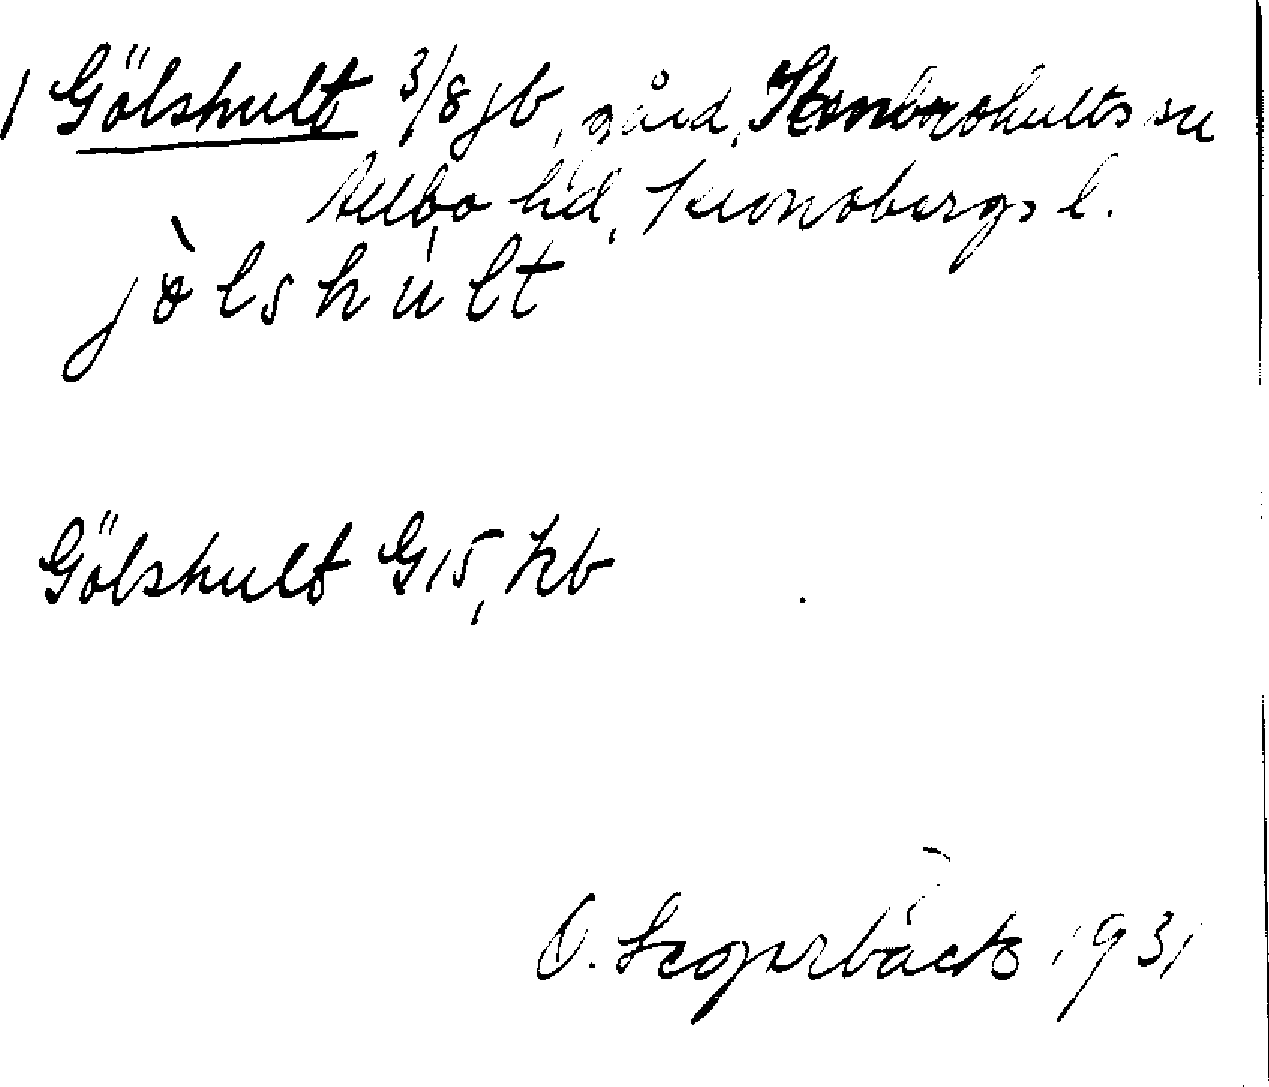 1 Gölshult 3/8 jb, gård, Stenbrohults sn
Allbo hd, Kronobergs l.
jòlshúlt
Gölshult G15, kb
O. Segerbäck 1931